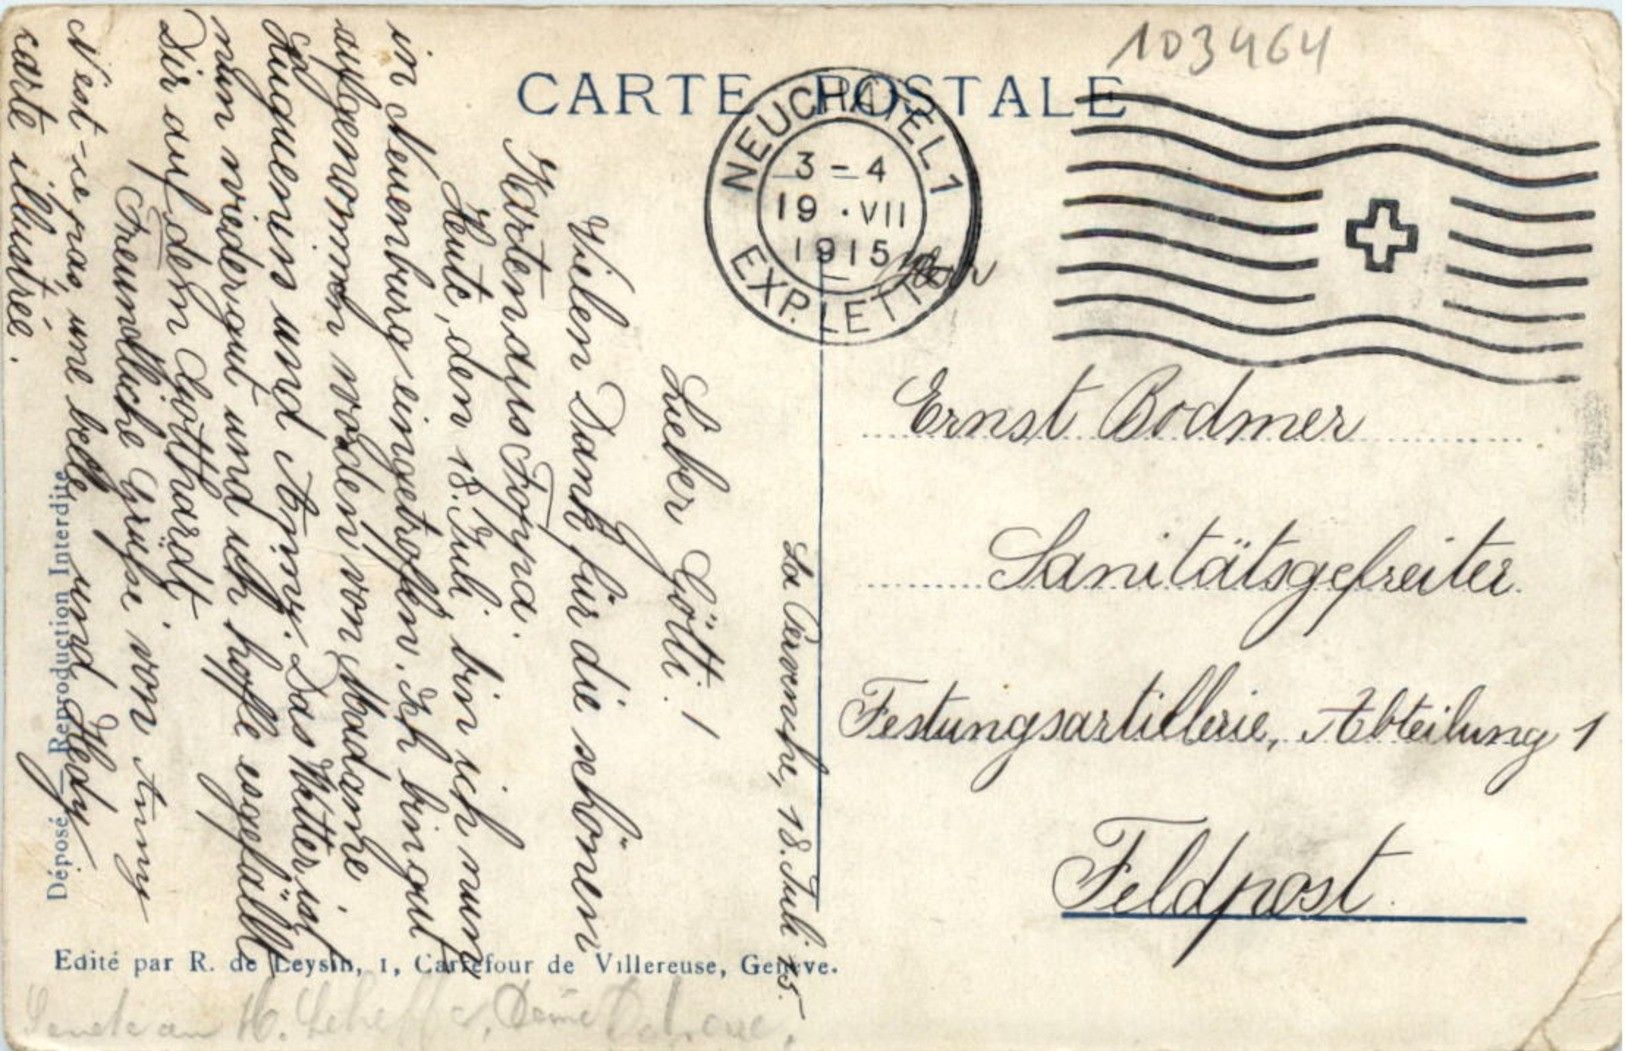 103464
CARTE POSTALE
NEUCHATEL 1
3 – 4
19 · VII
1915
EXP. LETTR.
La 18. Juli 15.
Lieber Götti!
Vielen Dank für die schönen
Karten aus Foppa.
Heute, den 18. Juli, bin ich nun
in Neuenburg eingetroffen. Ich bin gut
aufgenommen worden von Madame
Huguenin und Anny. Das Wetter ist
nun wieder gut und ich hoffe es gefällt
Dir auf dem Gotthardt
Freundliche Grüße von Anny
und Hedy
N'est-ce pas, une belle
carte illustrée.
Herr
Ernst Bodmer
Sanitätsgefreiter
Festungsartillerie, Abteilung 1
Feldpost.
Déposé – Reproduction Interdite
Edité par R. de Leysin, 1, Carrefour de Villereuse, Genève.